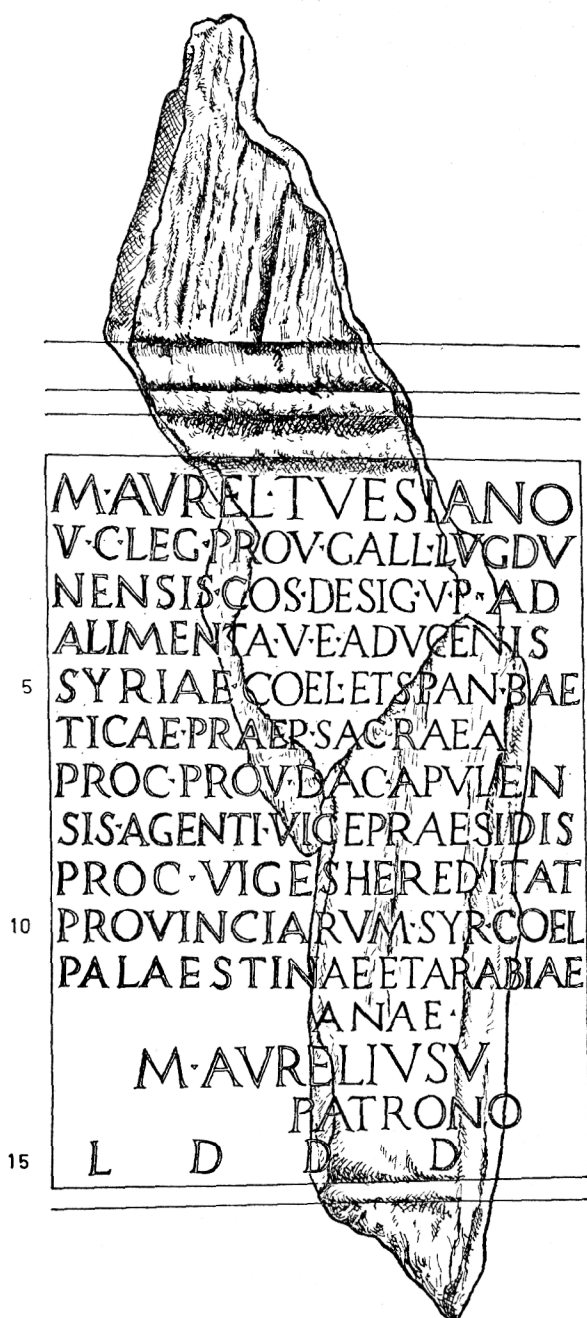 M·AVREL·TVESIANO
V·C·LEG·PROV·GALL·LVGDV
NENSIS·COS·DESIG·V·P·AD
ALIMENTA·V·E·ADVCENIS
5 SYRIAE·COEL·ET SPAN·BAE
TICAE·PRAEP·SACRAEA
PROC·PROV·DAC·APVLEN
SIS·AGENTI·VICEPRAESIDIS
PROC·VIGESHEREDITAT
10 PROVINCIARVM·SYR·COEL
PALAESTINAEETARABIAE
ANAE·
M·AVRELIVSV
PATRONO
15 L D D D